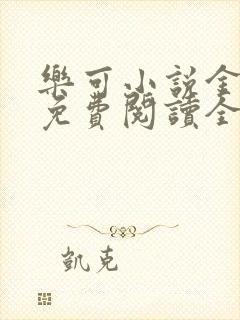 樂可小說全
免費閱讀全
凱克